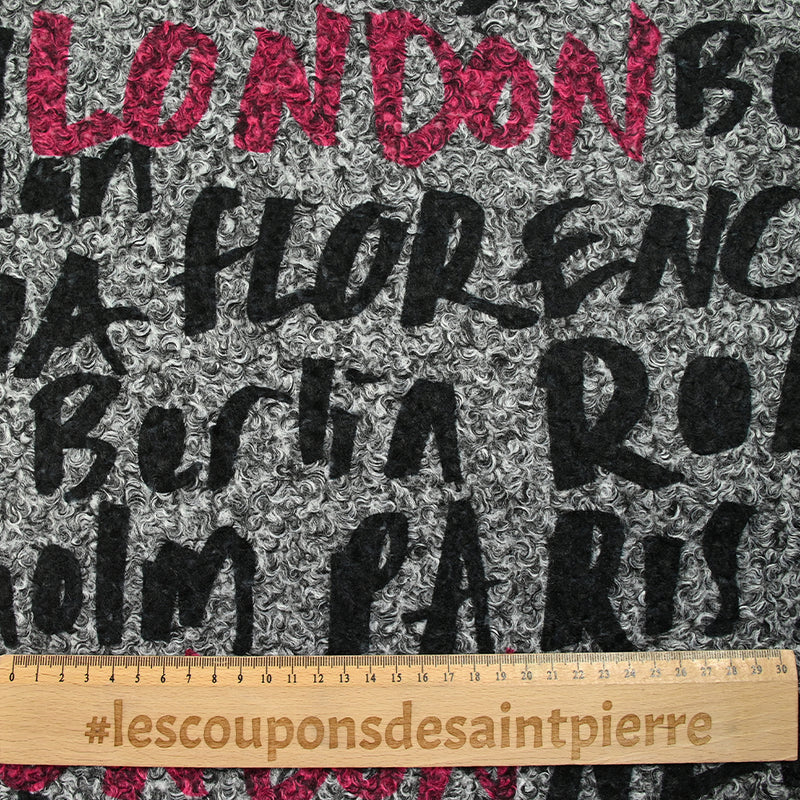 LONDON
FLORENC
Berlin RO
holm PARIS
0 1 2 3 4 5 6 7 8 9 10 11 12 13 14 15 16 17 18 19 20 21 22 23 24 25 26 27 28 29 30
#lescouponsdesaintpierre